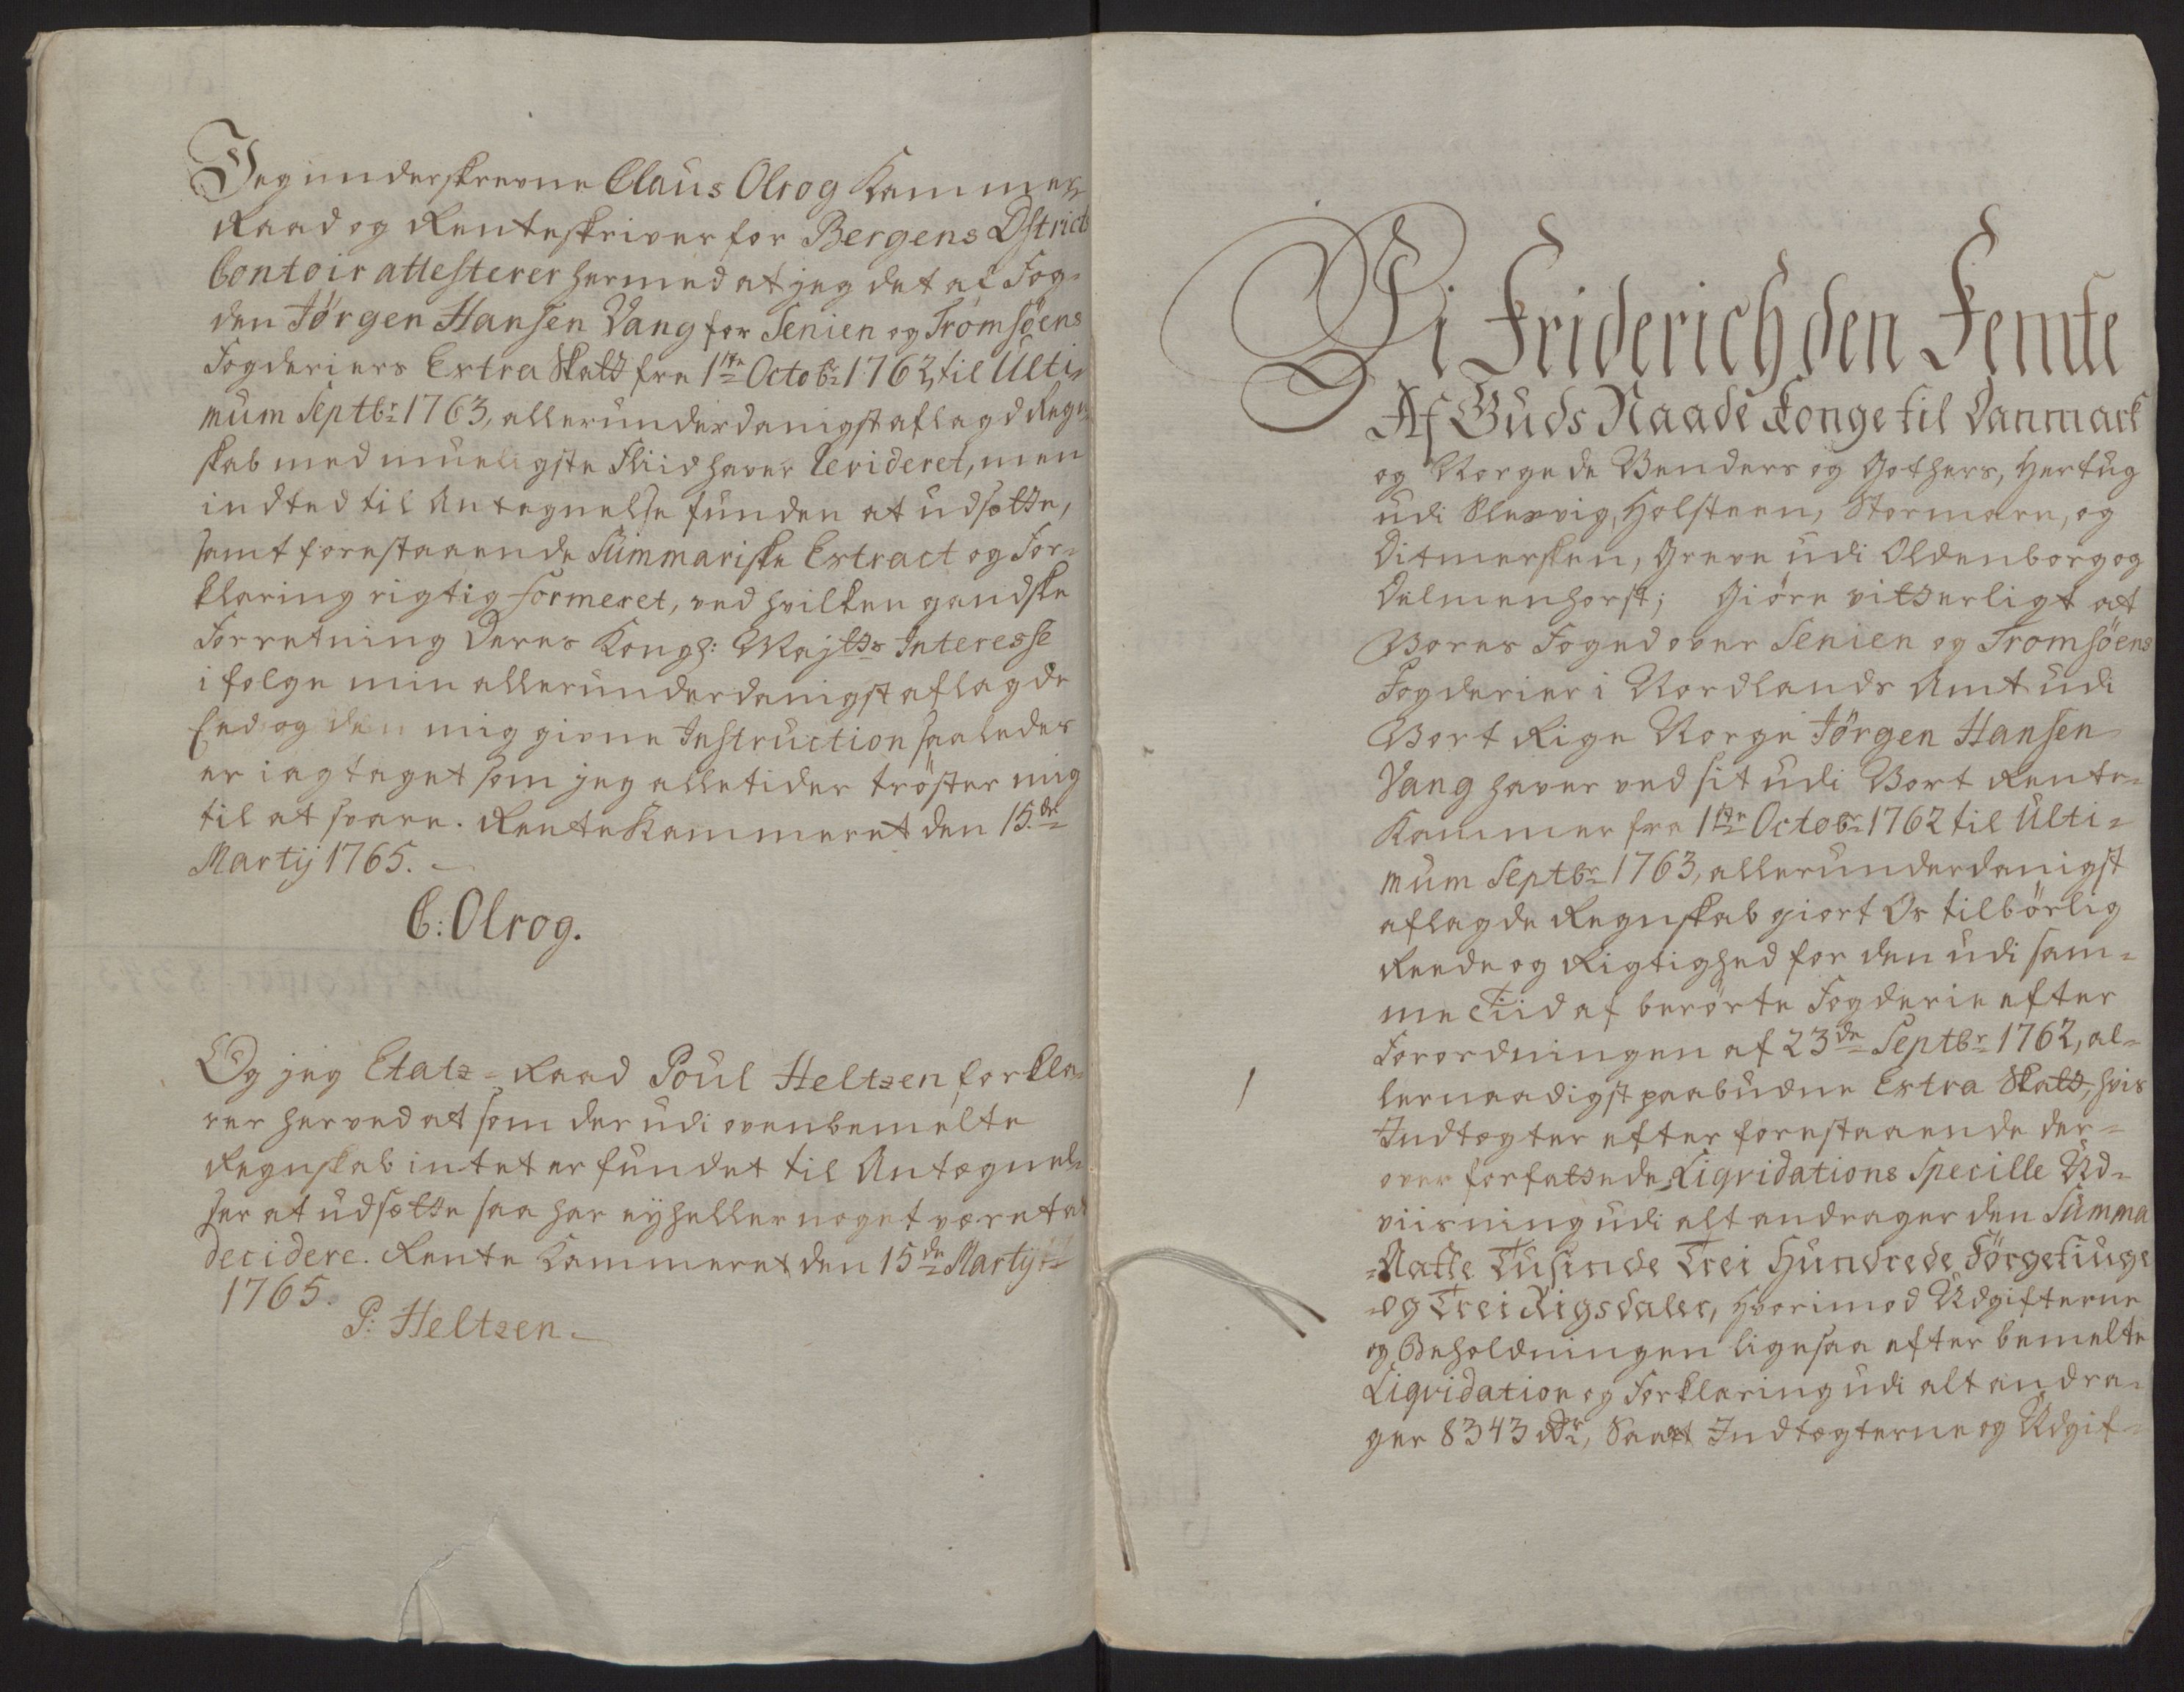 Jeg underskrevne Claus Olrog Kammer
Raad og Renteskriver for Bergens Dstricts
Contoir attesterer hermed at jeg det af Fog-
den Jørgen Hansen Vang for Senien og Tromsøens
Fogderiers Extra Skatt fra 1ste Octobr 1762 til Ulti-
mum Septbr 1763, allerunderdanigst aflagd Regn-
skab med mueligste Fliid haver Revideret, men
indted til Antegnelse funden at udsætte,
samt forestaaende Summariske Extract og For-
klaring rigtig formeret, ved hvilken gandske
Forretning Deres Kongl: Mayts Interesse
i følge min allerunderdanigst aflagde
Eed og den mig givne Instruction saaledes
er iagtaget som jeg alletider trøster mig
til at svare. RenteKammeret den 15de
Martij 1765.
C: Olrog.
Og jeg Etatz-Raad Poul Heltzen forkla-
rer herved at som der udi ovenbemelte
Regnskab intet er fundet til Antægnel-
ser at udsætte saa har ey heller noget været at
decidere. Rente Kammeret den 15de Martij
1765.
P: Heltzen
Vi Friderich den Femte
Af Guds Naade Konge til Danmark
og Norge de Venders og Gothers, Hertug
udi Slesvig, Holsteen, Stormarn, og
Ditmersken, Greve udi Oldenborg og
Delmenhorst; Giøre vitterligt at
Vores Foged over Senien og Tromsøens
Fogderier i Nordlands Amt udi
Vort Rige Norge Jørgen Hansen
Vang haver ved sit udi Vort Rente-
Kammer fra 1ste Octobr 1762 til Ulti-
mum Septbr 1763, allerunderdanigst
aflagde Regnskab giort Os tilbørlig
Reede og Rigtighed for den udi sam-
me Tiid af berørte Fogderie efter
Forordningen af 23de Septbr 1762, al-
lernaadigst paabudne Extra Skatt, hvis
Indtægter efter forestaaende der-
over forfattede Liqvidations Specille Ud-
viisning udi alt andrager den Summa
-Aatte Tusinde Trei Hundrede Førgetiuge
-og Trei Rigsdaler, hvorimod Udgifterne
og Beholdningen ligesaa efter bemelte
Liqvidation og Forklaring udi alt andra-
ger 8343 Rdr, Saa at Indtægterne og Udgif-